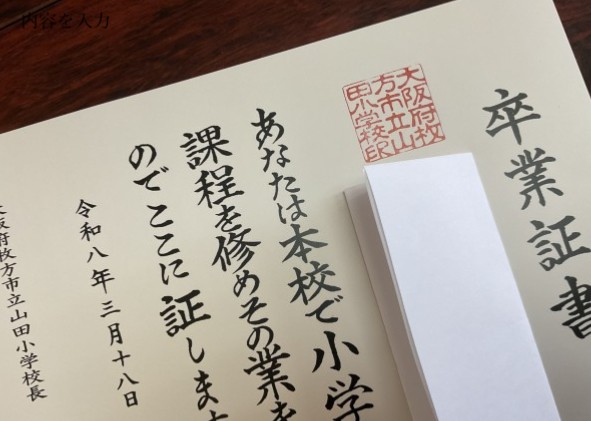 内容を入力
卒業証書
大阪府枚
方市立山
田小学校印
あなたは本校で小学
課程を修めその業を
のでここに証します
令和八年三月十八日
大阪府枚方市立山田小学校長